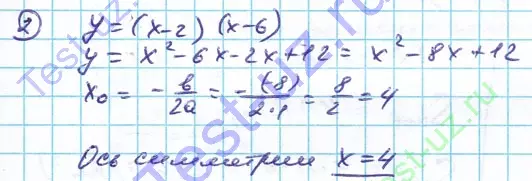 ② y = (x-2) (x-6)
y = x² - 6x - 2x + 12 = x² - 8x + 12
x₀ = - b/2a = - (-8)/2·1 = 8/2 = 4
Ось симметрии x = 4
Test-uz.ru